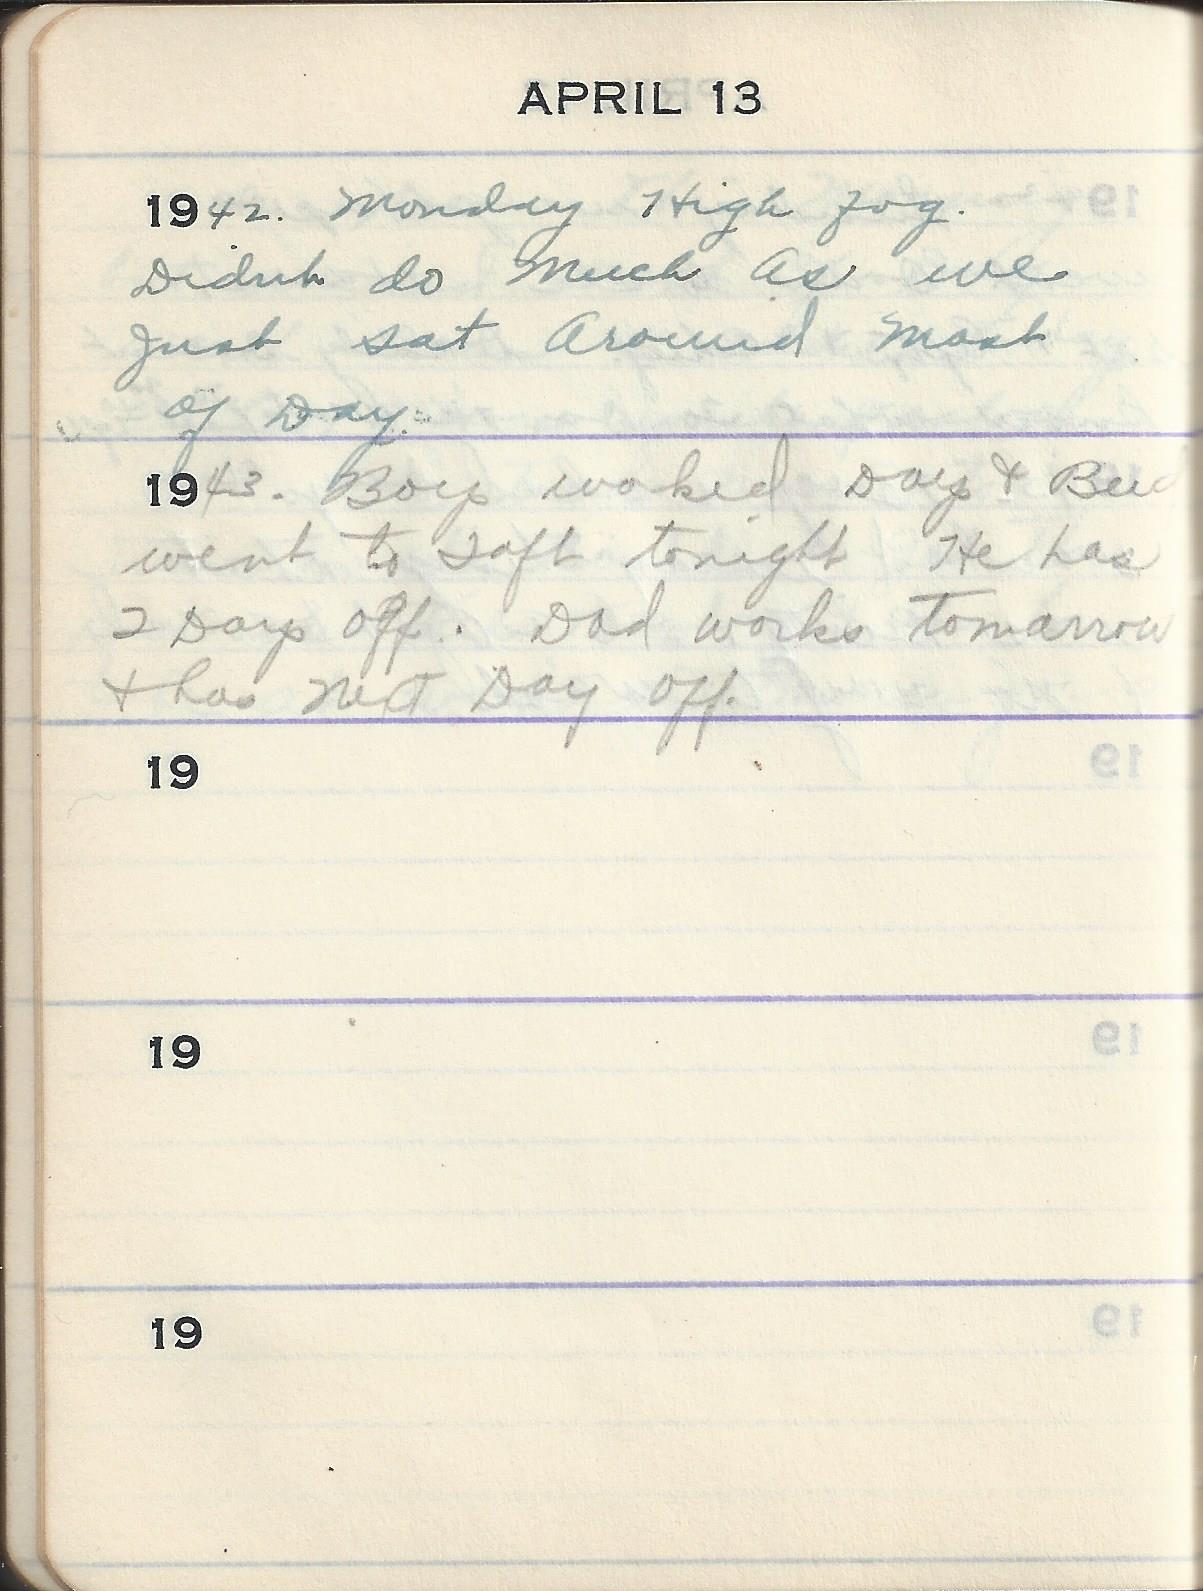 APRIL 13
1942. Monday High fog.
Didnt do Much As we
Just sat Around Most
of Day.
1943. Boys worked Days & Bud
went to Taft tonight He has
2 Days off. Dad works tomarrow
& has next Day off.
19
19
19